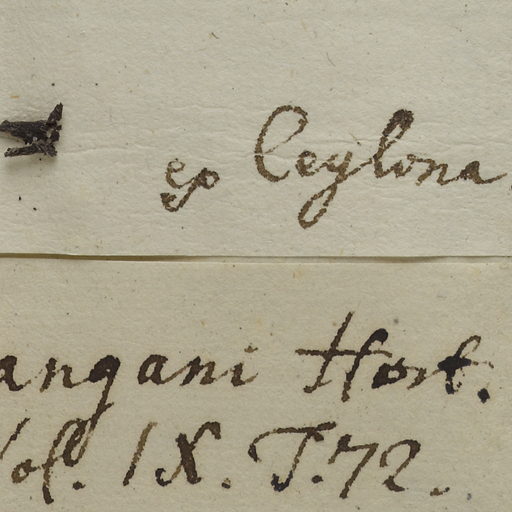 ex Ceylona.
angani Hort.
Vol. IX. T. 72.